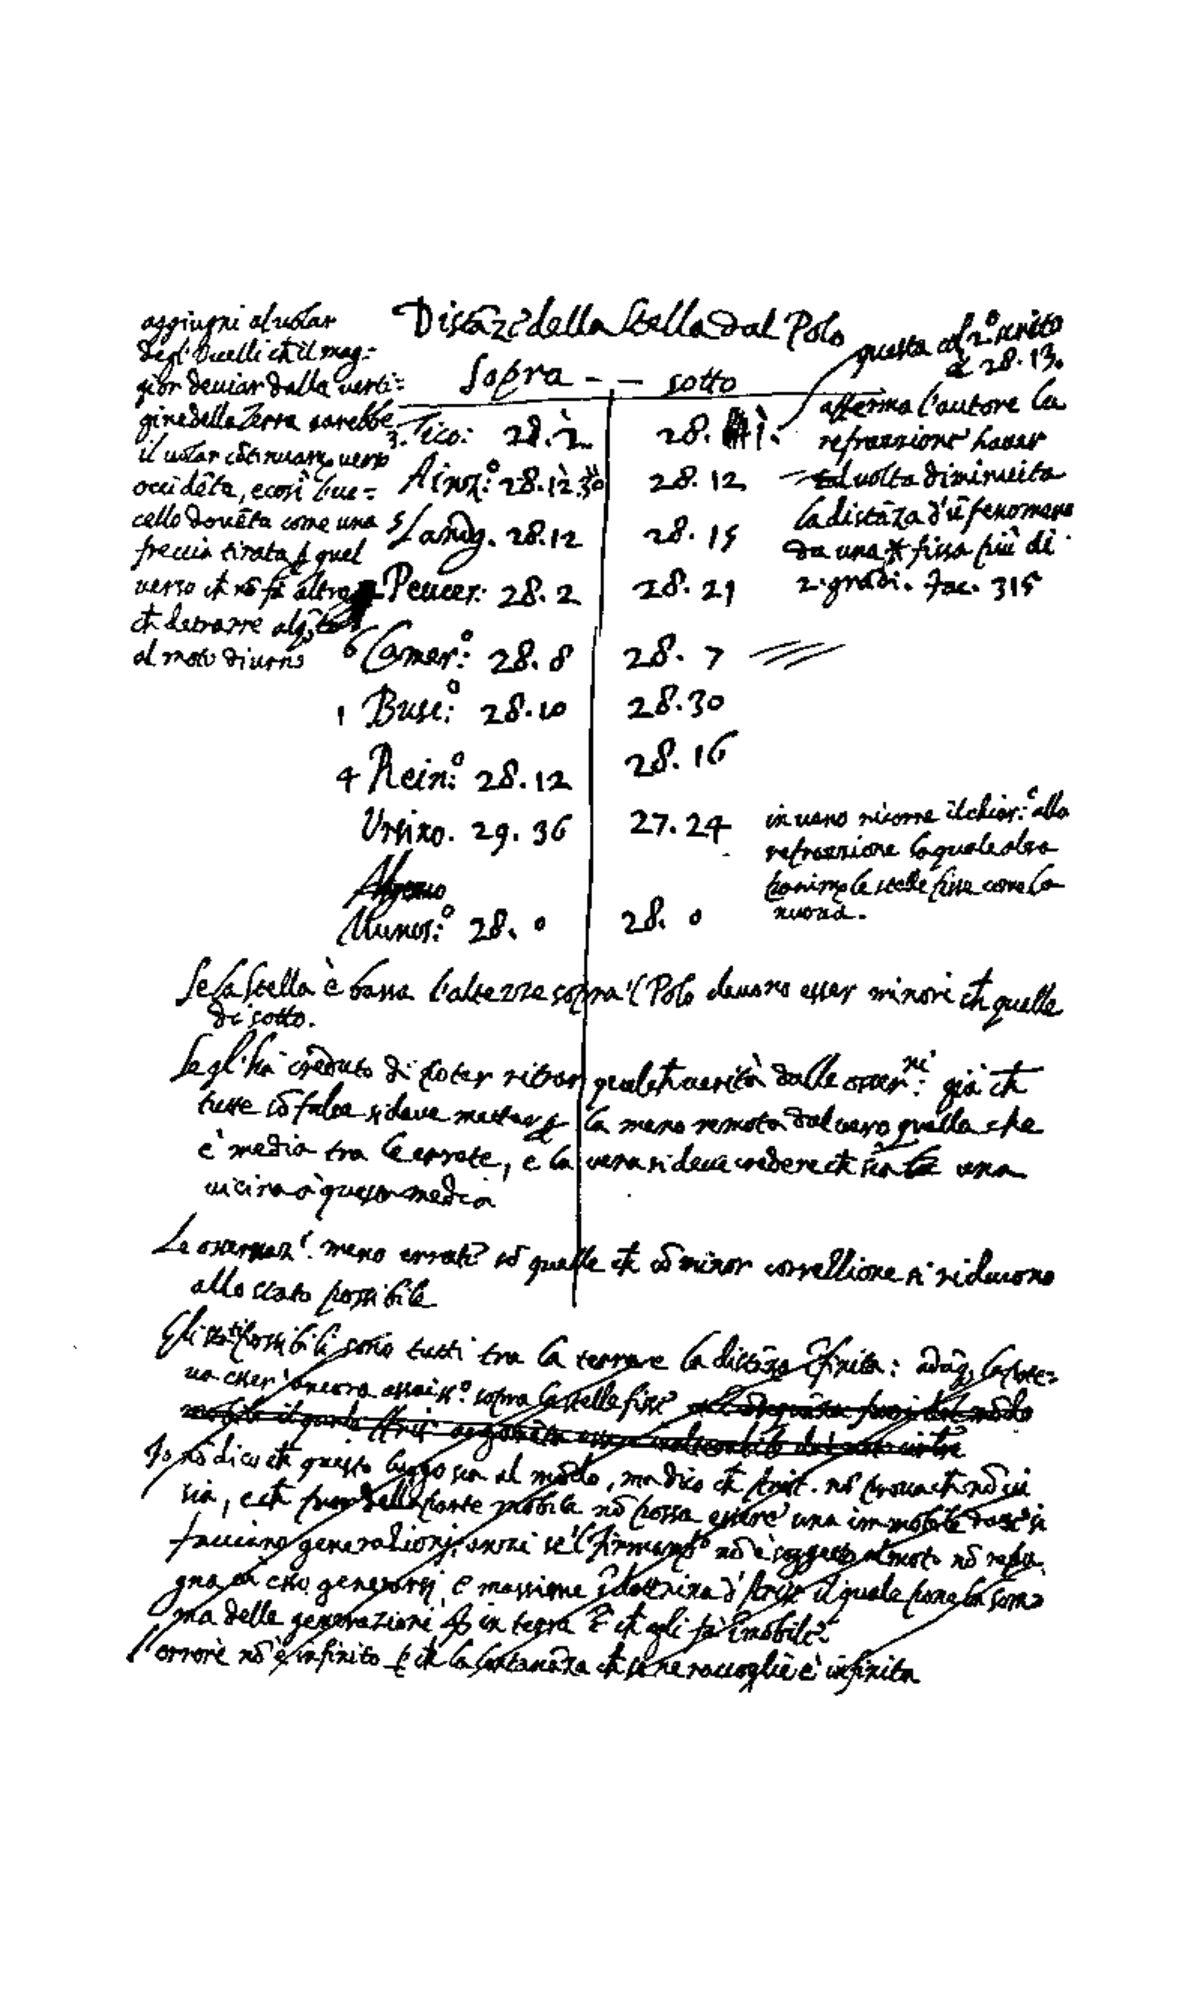 aggiugni al volar
degl'Uccelli ch̄ il mag:
gior deviar dalla verti=
gine della Terra sarebbe
il volar cōtinuamē verso
occidēte, e così l'uc=
cello dovēta come una
freccia tirata ꝑ quel
verso ch̄ nō fa altro
ch̄ detrarre alqto
al moto diurno
Distāze della Stella dal Polo
Sopra - - sotto
questa al 2.º scritto
è 28.13.
3. Tico: 28.2 28. 1.
Ainz:º 28.12.30 28.12
5 Landg. 28.12 28.15
Peucer: 28.2 28.21
6 Camer:º 28.8 28.7
1 Busc:º 28.10 28.30
4 Rein:º 28.12 28.16
Ursino. 29.36 27.24
Munos:º 28.0 28.0
afferma l'autore la
refrazzione haver
tal volta diminuita
la distāza d'ū fenomeno
da una * fissa più di
2. gradi. fac. 315
in vano ricorre il chiar: alla
refrazzione la quale alza
le stelle fisse come la
nuova.
Se la Stella è bassa l'altezze sopra 'l Polo devono esser minori ch̄ quelle
di sotto.
Se gl'ha creduto di poter ritrar qualch̄ verità dalle osser:ni già ch̄
tutte sō false si deve metter ꝑ la meno remota dal vero quella che
è media tra le errate, e la vera si deve credere ch̄ sia una
vicina a questa media
Le osservazi. meno errate sō quelle ch̄ cō minor correttione si riducono
allo stato possibile
Gli stati possibili sono tutti tra la terra e la distāza īfinita: adūq. la pote=
va esser ancora assaiss.º sopra le stelle fisse
Io nō dico ch̄ questo luogo sia al mōdo, ma dico ch̄ Arist. nō prova ch̄ nō vi
sia, e ch̄ fuor della parte mobile nō possa essere una immobile dove si
faccino generazioni, anzi se 'l firmamto nō è soggetto al moto nō repu
gna in esso generarsi, e massime ī dottrina d'Arist. il quale pone la som=
ma delle generazioni in terra ꝑ ch̄ gli fà īmobile
l'errore nō è infinito ꝑ ch̄ la lontananza ch̄ se ne raccoglie è infinita